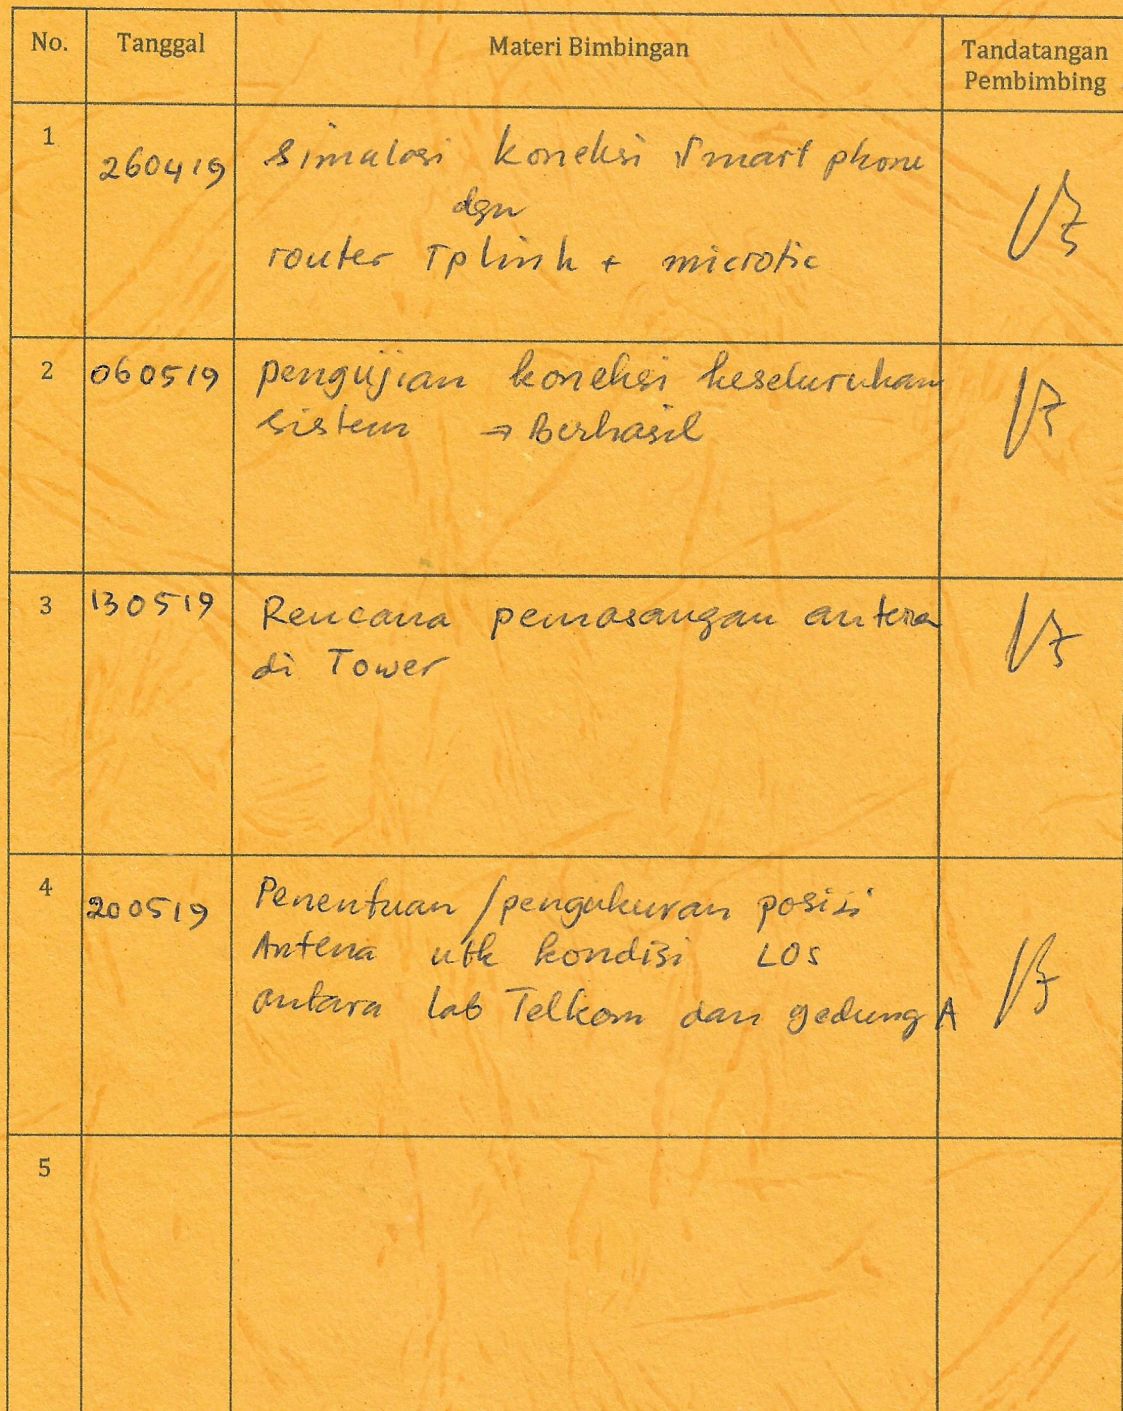 No. Tanggal Materi Bimbingan Tandatangan
Pembimbing
1
260419 Simulasi koneksi Smart phone
dgn
router Tplink + microtic
2 060519 pengujian koneksi keseluruhan
sistem ⇒ Berhasil
3 130519 Rencana pemasangan antena
di Tower
4
200519 Penentuan / pengukuran posisi
Antena utk kondisi LOS
antara lab Telkom dan gedung A
5